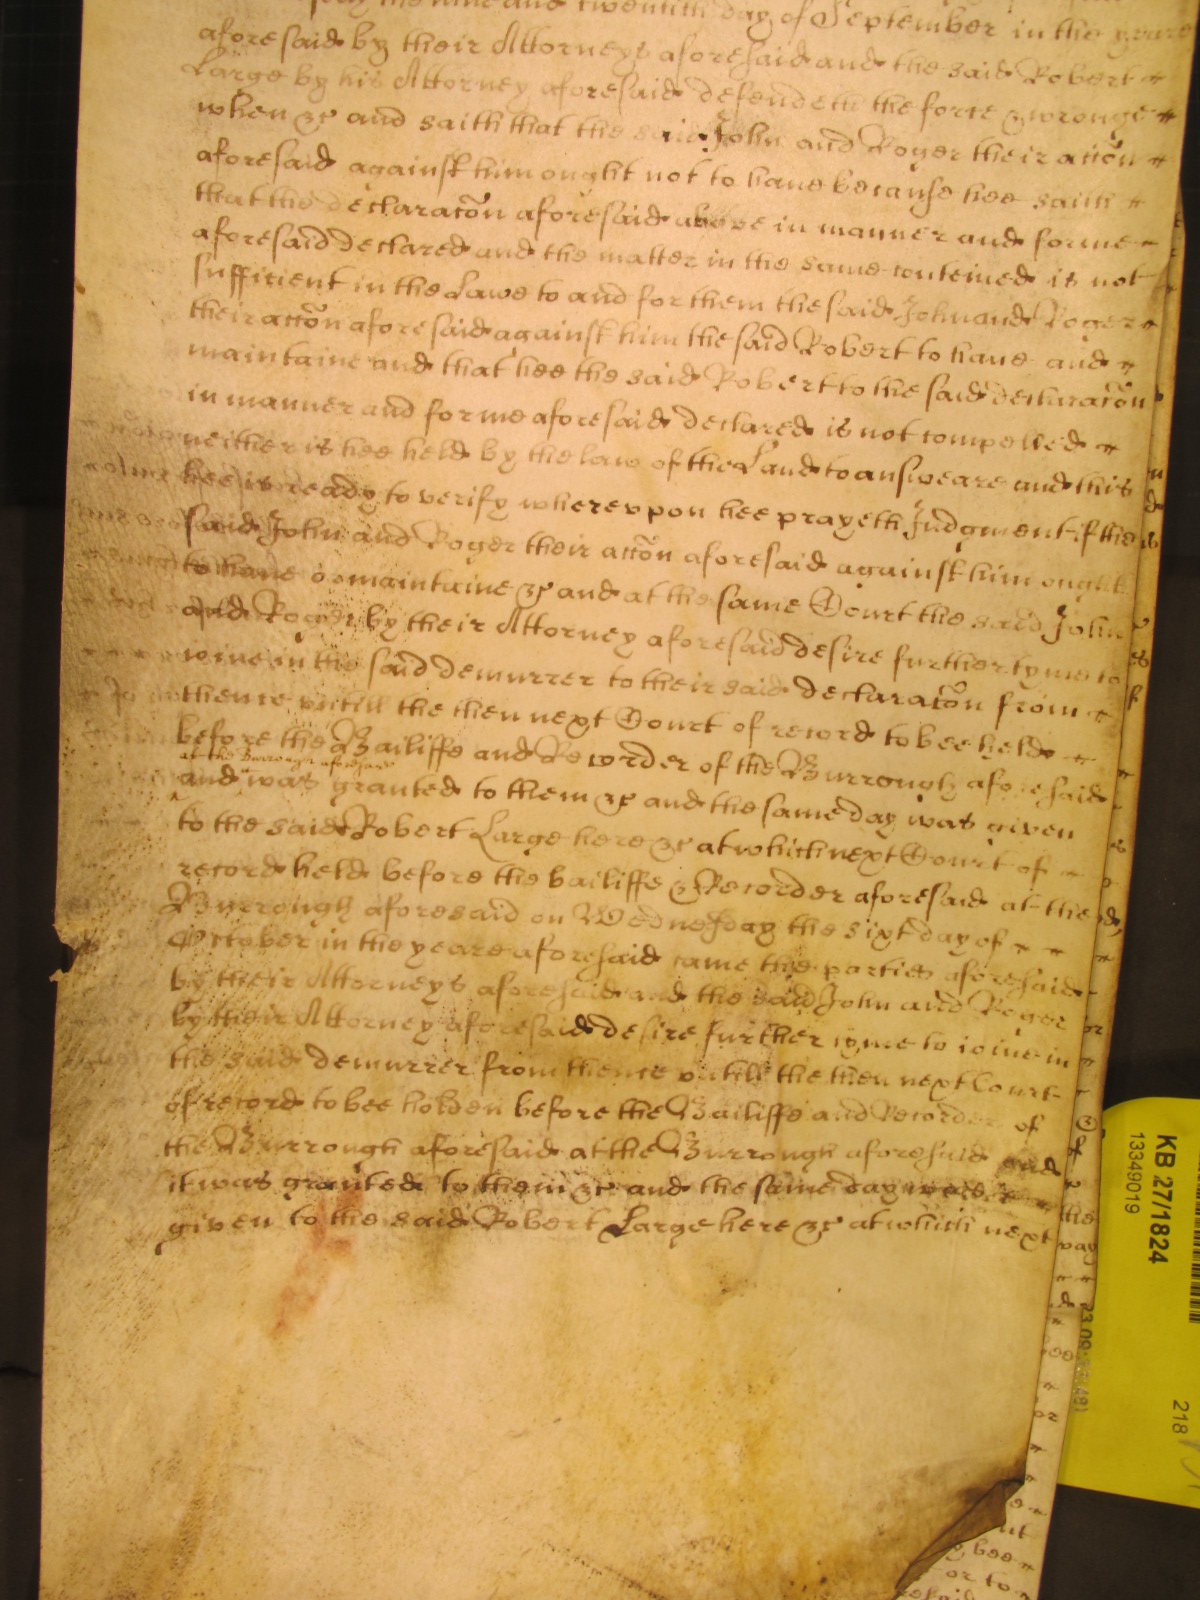 the nine and twentith day of September in the yeare
aforesaid by their Attorneys aforesaid and the said Robert
Large by his Attorney aforesaid defendeth the force & wronge
when &c and saith that the said John and Roger their accõn
aforesaid against him ought not to have because hee saith
that the declaracõn aforesaid above in manner and forme
aforesaid declared and the matter in the same conteined is not
sufficient in the Lawe to and for them the said John and Roger
their accõn aforesaid against him the said Robert to have and
maintaine and that hee the said Robert to the said declaracõn
in manner and forme aforesaid declared is not compelled
neither is hee held by the law of the Land to answeare and this
hee is ready to verify wherevpon hee prayeth Judgment if the
said John and Roger their accõn aforesaid against him ought
to have or maintaine &c and at the same Court the said John
and Roger by their Attorney aforesaid desire further tyme to
ioine in the said demurrer to their said declaracõn from
thence vntill the then next Court of record to bee held
before the Bailiffs and Recorder of the Burrough aforesaid
at the Burrough aforesaid
and was granted to them &c and the same day was given
to the said Robert Large here &c at which next Court of
record held before the bailiffs & Recorder aforesaid at the
Burrough aforesaid on Wednesday the sixt day of
October in the yeare aforesaid came the parties aforesaid
by their Attorneys aforesaid and the said John and Roger
by their Attorney aforesaid desire further tyme to ioine in
the said demurrer from thence vntill the then next Court
of record to bee holden before the Bailiffs and Recorder of
the Burrough aforesaid at the Burrough aforesaid and
it was granted to them &c and the same day
given to the said Robert Large here &c at which next
KB 27/1824
13349019
218